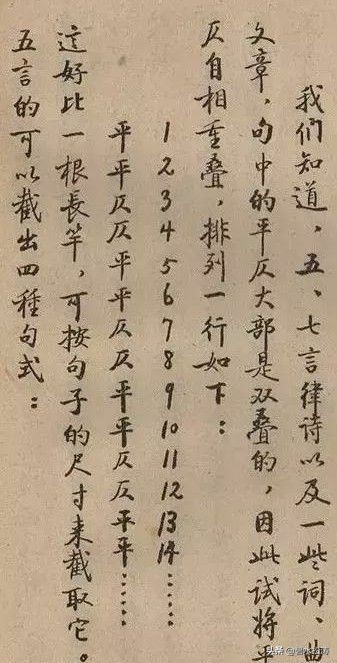 我們知道，五、七言律诗以及一些词、曲
文章，句中的平仄大部是双叠的，因此试将平
仄自相重叠，排列一行如下：
1 2 3 4 5 6 7 8 9 10 11 12 13 14……
平平仄仄平平仄仄平平仄仄平平……
這好比一根長竿，可按句子的尺寸来截取它。
五言的可以截出四種句式：
头条